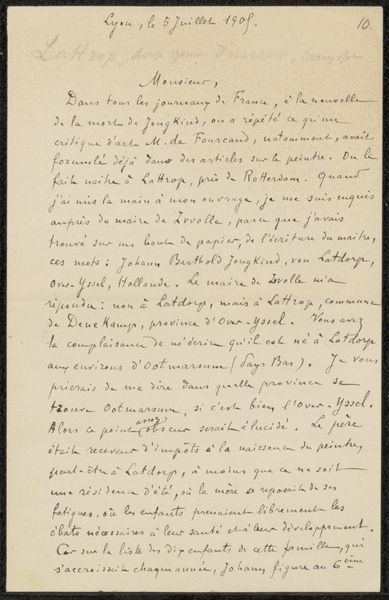 Lyon, le 5 Juillet 1905.
10.
Lathrop,
Monsieur,
Dans tous les journaux de France, à la nouvelle
de la mort de Jongkind, on a répété ce qu'un
critique d'art M. de Fourcaud, notamment, avait
formulé déjà dans des articles sur le peintre. On le
fait naître à Lathrop, près de Rotterdam. Quand
j'ai mis la main à mon ouvrage, je me suis enquis
auprès du maire de Zvolle, parce que j'avais
trouvé sur un bout de papier, de l'écriture du maître,
ces mots: Johann Barthold Jongkind, von Latdorp,
Over-Yssel, Hollande. Le maire de Zvolle m'a
répondu: non à Latdorp, mais à Lathrop, commune
de Denekamp, province d'Over-Yssel. Vous avez
la complaisance de m'écrire qu'il est né à Latdorp
aux environs d'Ootmarsum (Pays Bas). Je vous
prierais de me dire dans quelle province se
trouve Ootmarsum, si c'est bien l'Over-Yssel.
Alors ce point assez obscur serait élucidé. Le père
était receveur d'impôts à la naissance du peintre,
peut-être à Latdorp, à moins que ce ne soit
une résidence d'été, où la mère se reposait de ses
fatigues, où les enfants prenaient librement les
ébats nécessaires à leur santé et à leur développement.
Car sur la liste des dix enfants de cette famille, qui
s'accroissait chaque année, Johann figure au 6ème